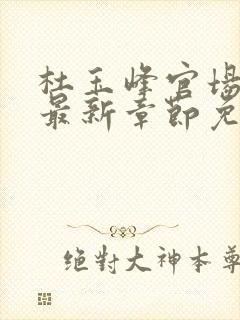 杜玉峰官场
最新章节免
绝对大神本尊